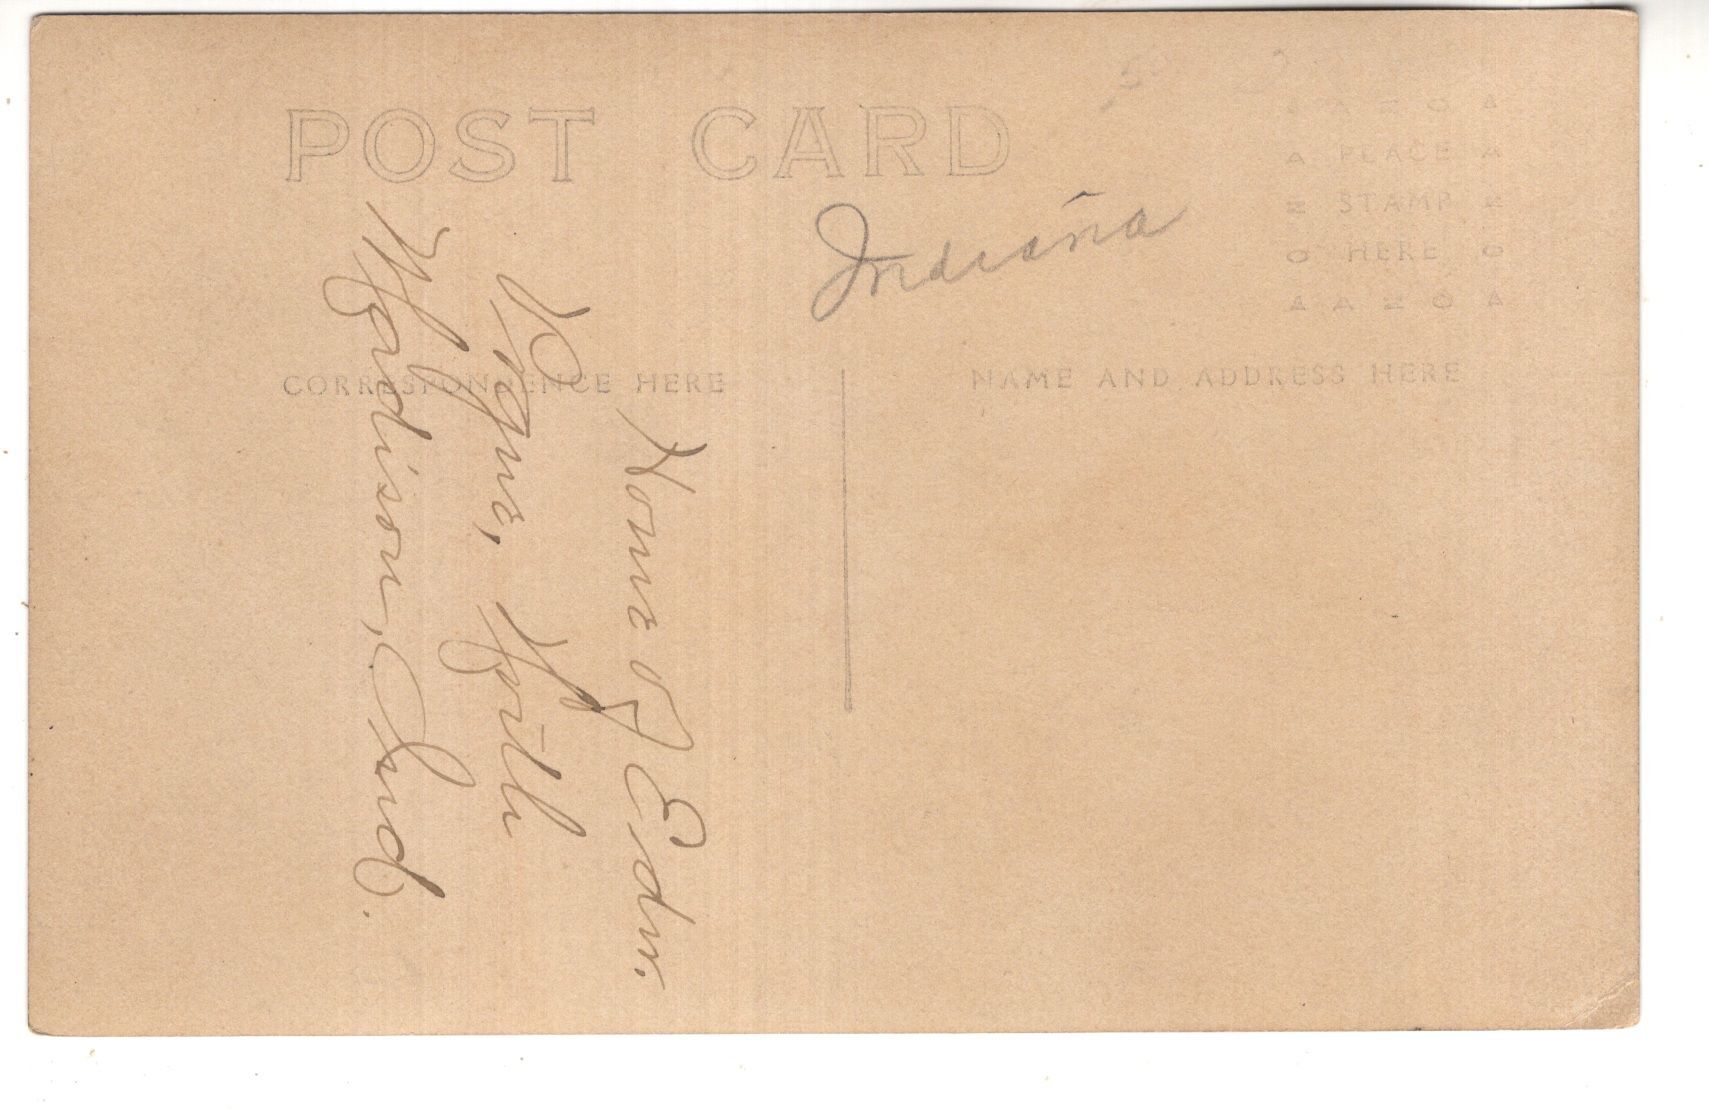 POST CARD
.50
Indiana
A A Z O A
A PLACE A
Z STAMP Z
O HERE O
A A Z O A
CORRESPONDENCE HERE
NAME AND ADDRESS HERE
Home of Edw.
Pogue, North
Madison, Ind.